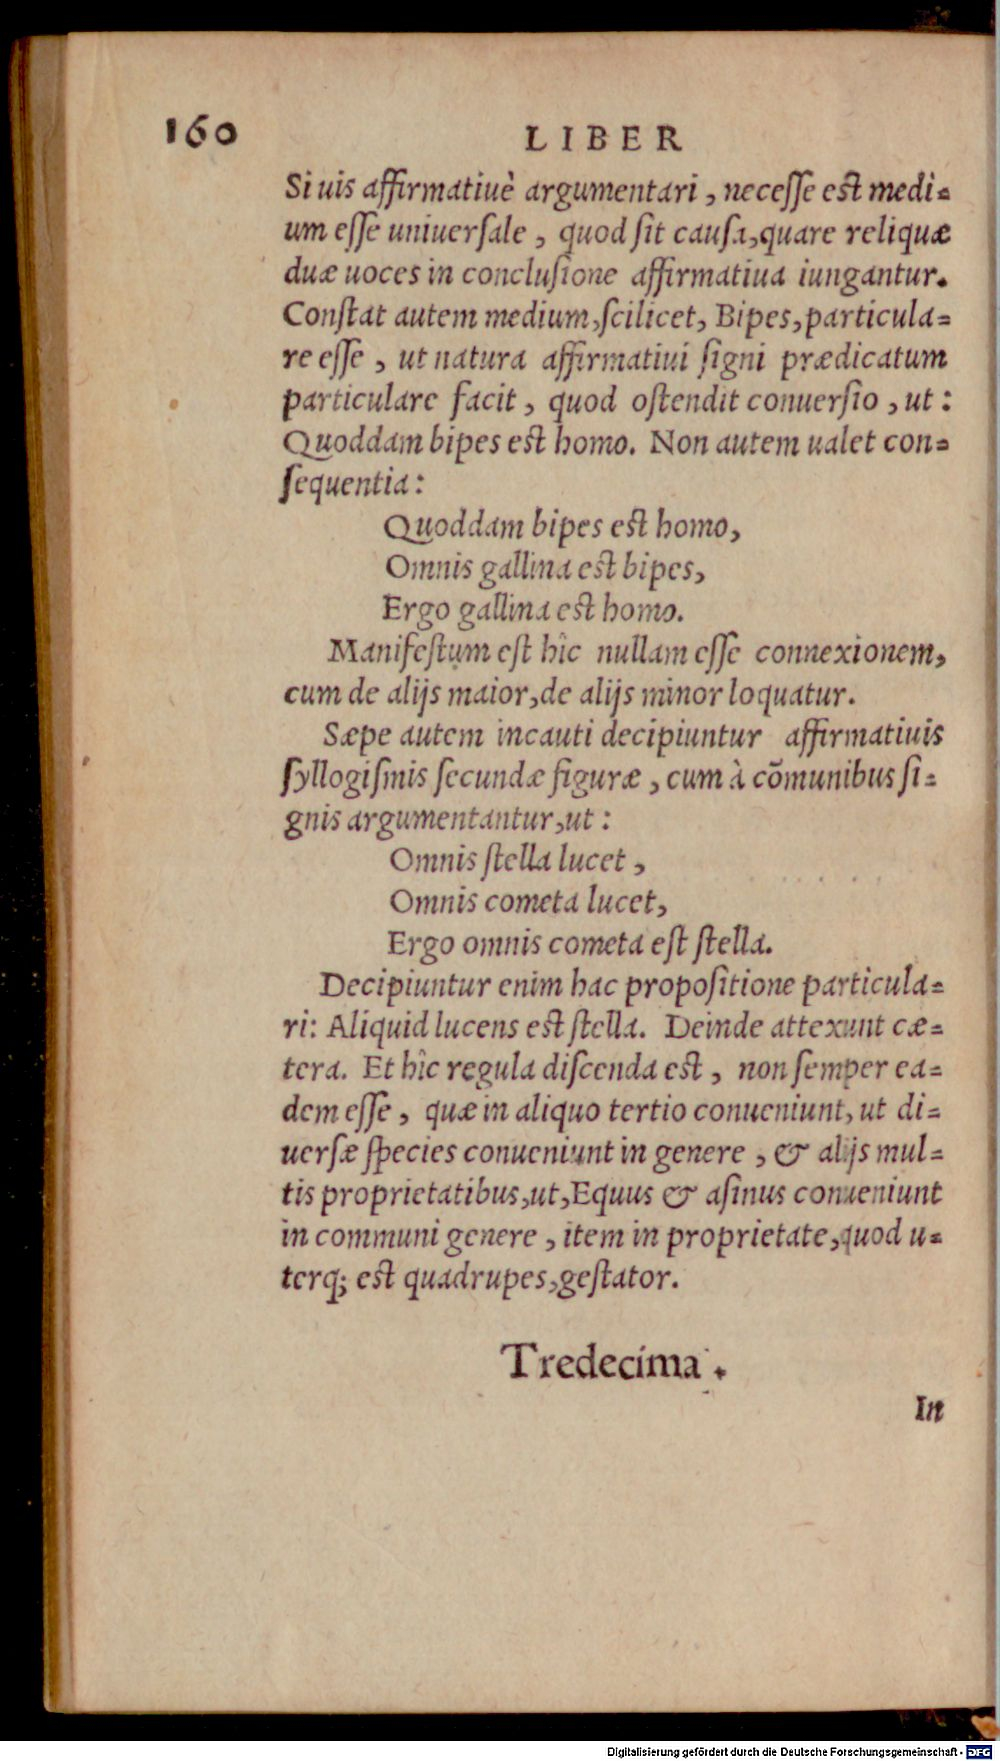 160 LIBER
Si uis affirmatiuè argumentari, necesse est medi=
um esse uniuersale, quod sit causa, quare reliquæ
duæ uoces in conclusione affirmatiua iungantur.
Constat autem medium, scilicet, Bipes, particula=
re esse, ut natura affirmatiui signi prædicatum
particulare facit, quod ostendit conuersio, ut:
Quoddam bipes est homo. Non autem ualet con=
sequentia:
Quoddam bipes est homo,
Omnis gallina est bipes,
Ergo gallina est homo.
Manifestum est hîc nullam esse connexionem,
cum de alijs maior, de alijs minor loquatur.
Sæpe autem incauti decipiuntur affirmatiuis
syllogismis secundæ figuræ, cum à cōmunibus si=
gnis argumentantur, ut:
Omnis stella lucet,
Omnis cometa lucet,
Ergo omnis cometa est stella.
Decipiuntur enim hac propositione particula=
ri: Aliquid lucens est stella. Deinde attexunt cæ=
tera. Et hîc regula discenda est, non semper ea=
dem esse, quæ in aliquo tertio conueniunt, ut di=
uersæ species conueniunt in genere, & alijs mul=
tis proprietatibus, ut, Equus & asinus conueniunt
in communi genere, item in proprietate, quod u=
terq; est quadrupes, gestator.
Tredecima.
In
Digitalisierung gefördert durch die Deutsche Forschungsgemeinschaft - DFG